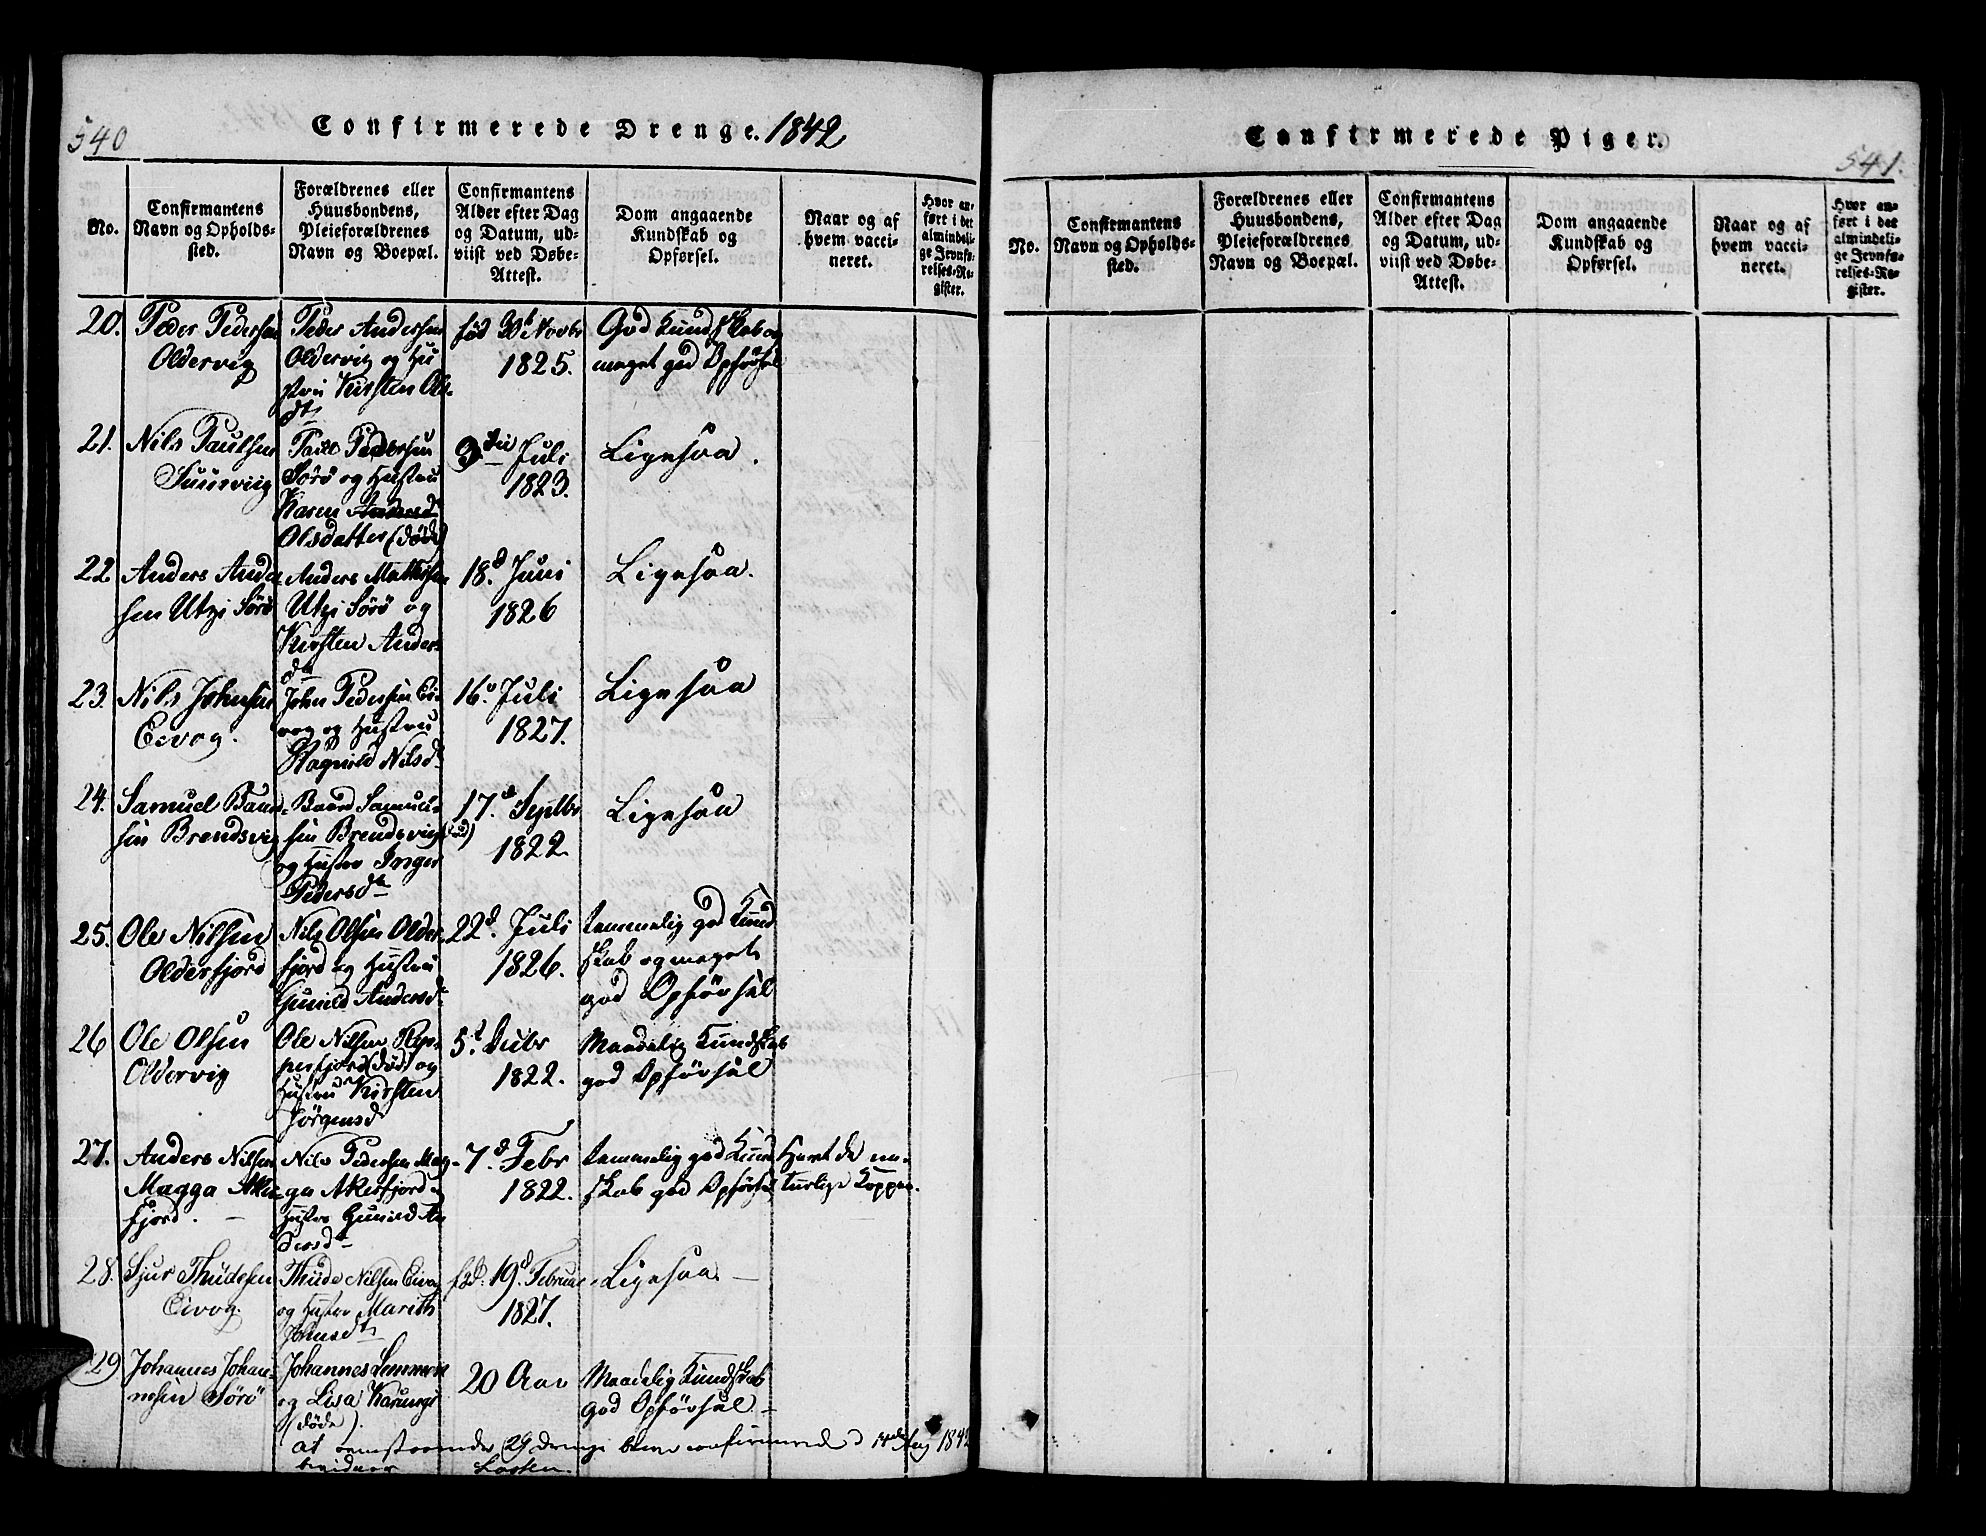 540
Confirmerede Drenge. 1842
No.
Confirmantens
Navn og Opholds-
sted.
Forældrenes eller
Huusbondens,
Pleieforældrenes
Navn og Boepæl.
Confirmantens
Alder efter Dag
og Datum, ud-
viist ved Døbe-
Attest.
Dom angaaende
Kundskab og
Opførsel.
Naar og af
hvem vacci-
neret.
Hvor an-
ført i det
almindeli-
ge Jevnfø-
relses-Re-
gister.
20.
Peder Pedersen
Oldervig
Peder Andersen
Oldervig og Hu
stru Kirsten Ols
dtr
fød 30t Novbr
1825.
God Kundskab og
meget god Opførsel
21.
Nils Paulsen
Poul Pedersen
Sørø og Hustru
Karen Andersd
Olsdatter (døde)
3die Juli
1823.
Ligesaa.
22
Anders Ander
sen Utzi Sørø
Anders Mathisen
Utzi Sørø og
Kirsten Anders
dtr
18d. Juni
1826
Ligesaa.
23.
Nils Johnsen
Eivog.
John Pedersen Ei-
vog og Hustru
Ragnild Nilsdr
16d Juli
1827.
Ligesaa
24.
Samuel Baar
sen Brendsvig
Baard Samuel-
sen Brendsvig (død)
og Hustru Inger
Pedersdtr
17d. Septbr
1822
Ligesaa
25.
Ole Nilsen
Olderfjord
Nils Olsen Older-
fjord og Hustru
Gunild Andersdr
22d. Juli
1826.
temmelig god Kund
skab og meget
god Opførsel
26
Ole Olsen
Oldervig
Ole Nilsen Rep-
perfjord (død) og
Hustru Kirsten
Jørgensd
5t
1822.
Maadelig Kundskab
god Opførsel
27.
Anders Nilsen
Magga Aker
fjord.
Nils Pedersen Mag-
ga Akerfjord
Hustru Gunild An
dersdtr
7d. Febr
1822.
temmelig god Kund
skab god Opførsel
Havt de na-
turlige Kopper.
28.
Sjur Thudesen
Eivog.
Thude Nilsen Eivog
og Hustru Marith
Johnsdtr
fød: 19d. Februar
1827.
Ligesaa.
29
Johannes Johan-
nesen Sørø
Johannes
og Lisa
(døde).
20 Aar
Maadelig Kundskab
god Opførsel
at 29 drenge bleve confirmerede d 14de Aug 1842
bevidner
Confirmerede Piger.
541.
No.
Confirmantens
Navn og Opholds-
sted.
Forældrenes eller
Huusbondens,
Pleieforældrenes
Navn og Boepæl.
Confirmantens
Alder efter Dag
og Datum, ud-
viist ved Døbe-
Attest.
Dom angaaende
Kundskab og
Opførsel.
Naar og af
hvem vacci-
neret.
Hvor an-
ført i det
almindeli-
ge Jevnfø-
relses-Re-
gister.